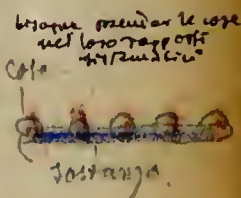 bisogna prender le cose
nel loro rapporti
sistematici
Cose
Sostanza.